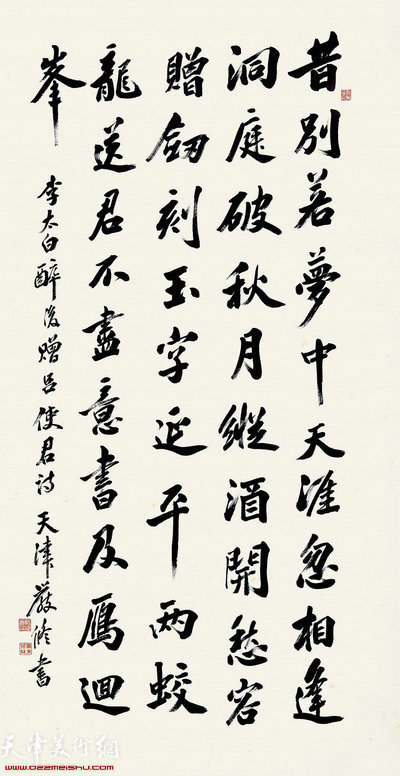 昔別若夢中天涯忽相逢
洞庭破秋月縱酒開愁容
贈劒刻玉字延平兩蛟
龍送君不盡意書及雁迴
峯
李太白醉後贈呂使君詩 天津嚴修書
天津美術網
www.022meishu.com